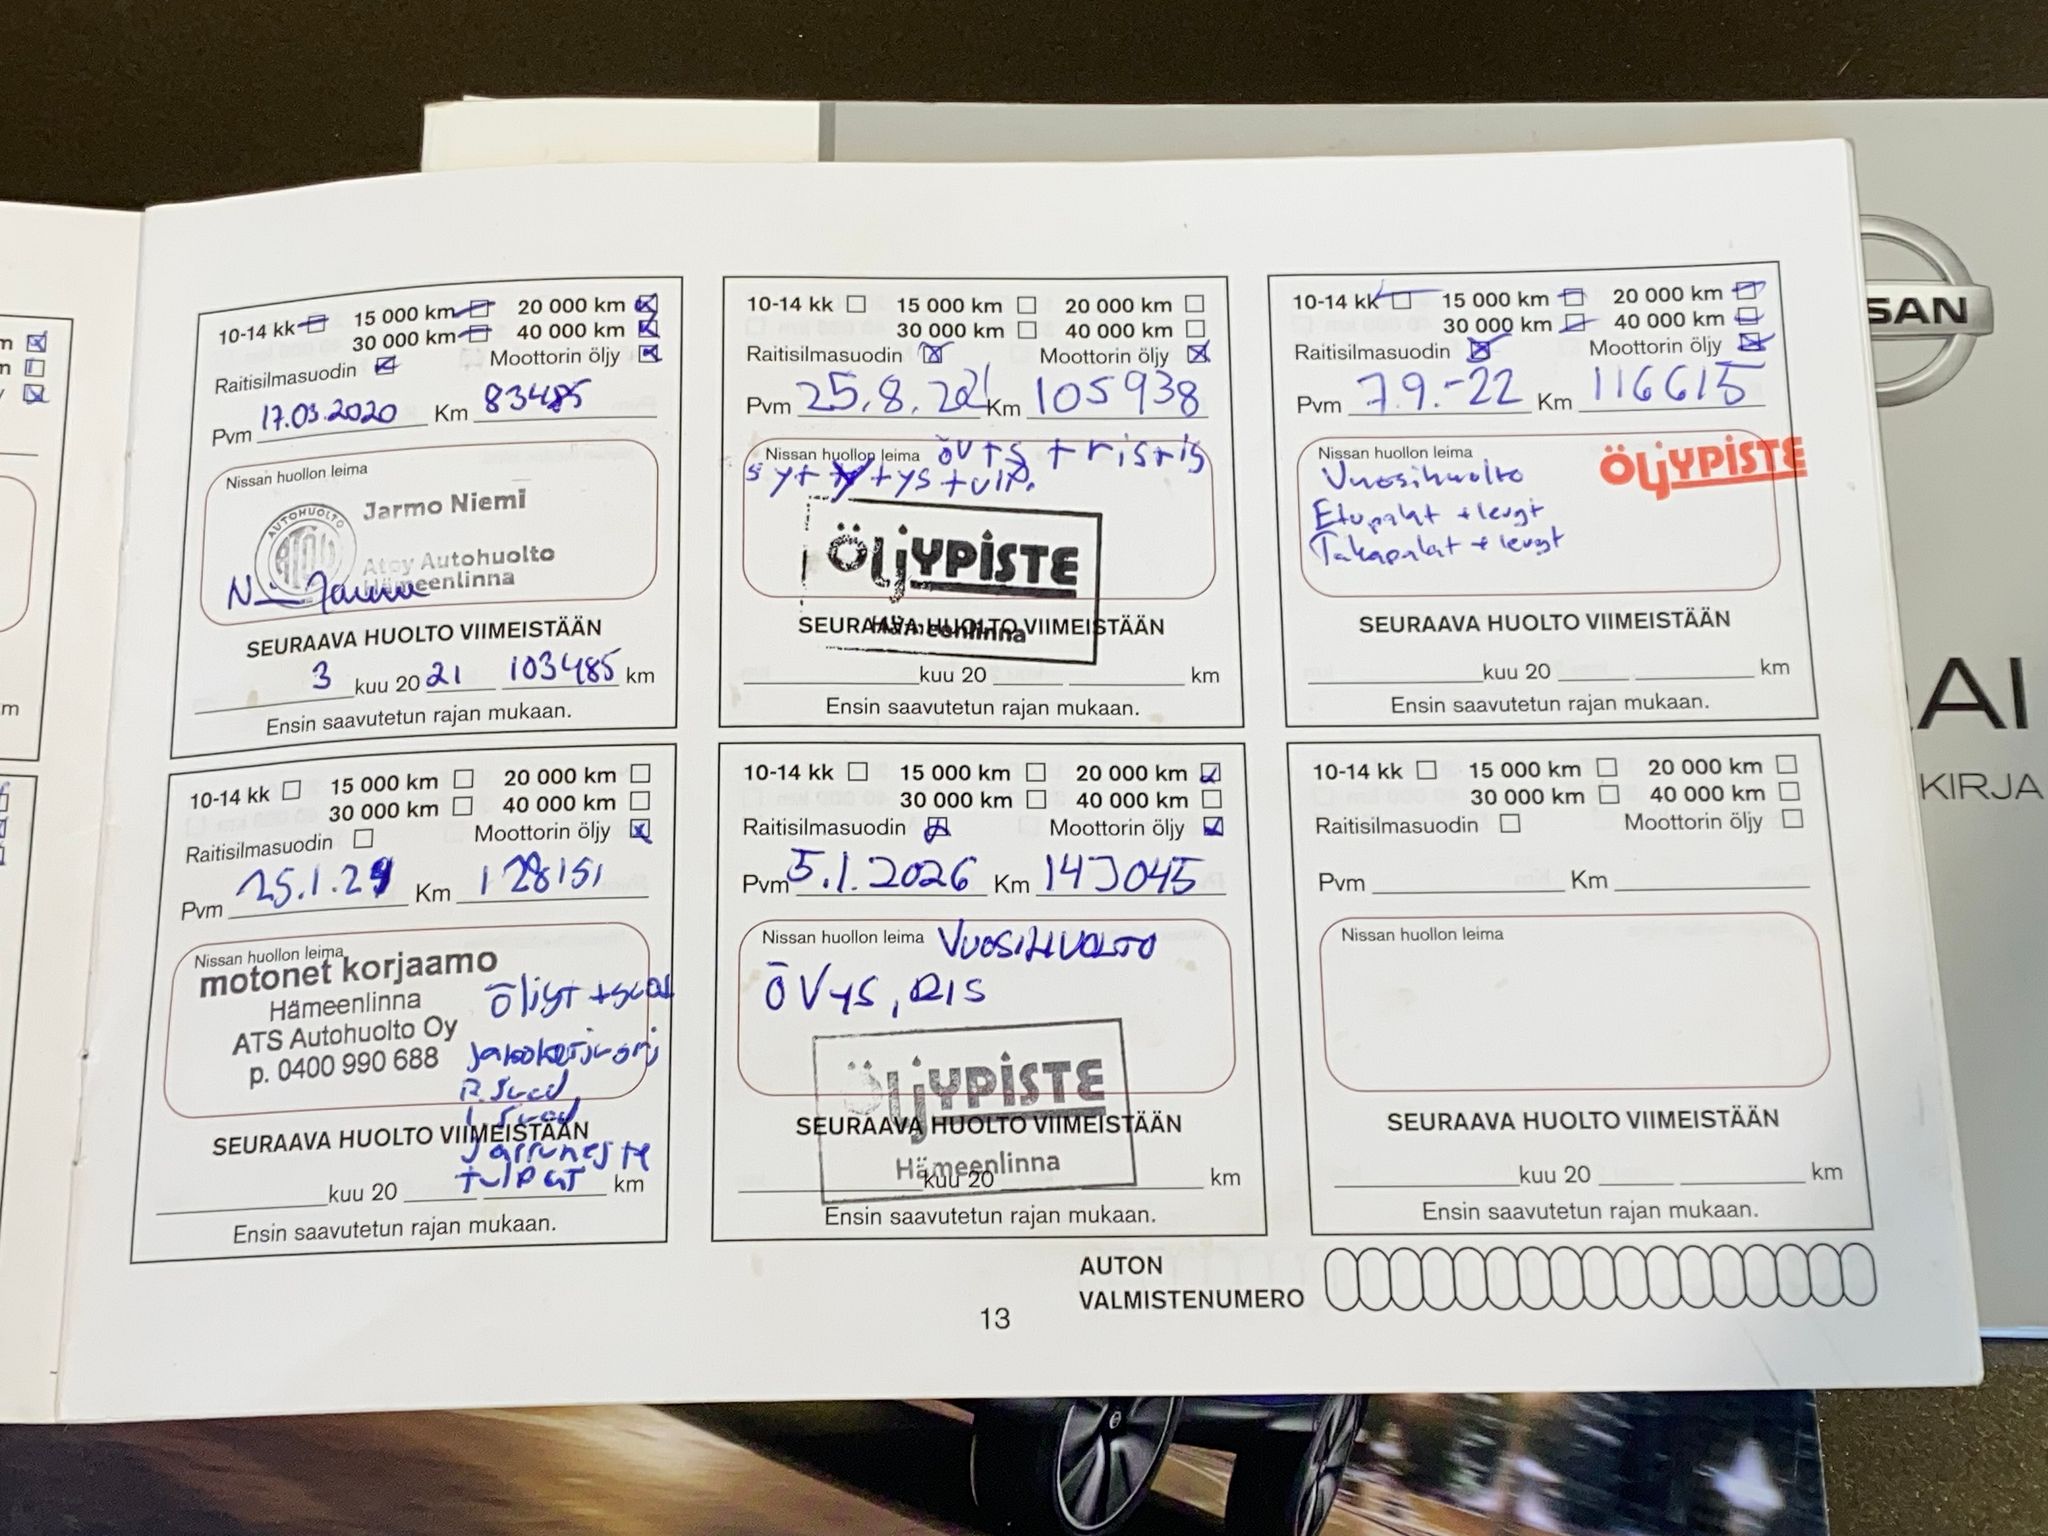 10-14 kk 15 000 km 20 000 km
30 000 km 40 000 km
Raitisilmasuodin Moottorin öljy
Pvm 17.03.2020 Km 83485
Nissan huollon leima
AUTOHUOLTO
Jarmo Niemi
Atoy Autohuolto
Hämeenlinna
SEURAAVA HUOLTO VIIMEISTÄÄN
3 kuu 20 21 103485 km
Ensin saavutetun rajan mukaan.
10-14 kk 15 000 km 20 000 km
30 000 km 40 000 km
Raitisilmasuodin Moottorin öljy
Pvm 25.8.2021 Km 105938
Nissan huollon leima öv+s +ris+is
ÖLJYPISTE
Hämeenlinna
SEURAAVA HUOLTO VIIMEISTÄÄN
kuu 20 km
Ensin saavutetun rajan mukaan.
10-14 kk 15 000 km 20 000 km
30 000 km 40 000 km
Raitisilmasuodin Moottorin öljy
Pvm 7.9.-22 Km 116615
Nissan huollon leima
ÖLJYPISTE
Vuosihuolto
Etupalat + levyt
Takapalat + levyt
SEURAAVA HUOLTO VIIMEISTÄÄN
kuu 20 km
Ensin saavutetun rajan mukaan.
10-14 kk 15 000 km 20 000 km
30 000 km 40 000 km
Raitisilmasuodin Moottorin öljy
Pvm 25.1.24 Km 128151
Nissan huollon leima
motonet korjaamo
Hämeenlinna
ATS Autohuolto Oy
p. 0400 990 688
öljyt +suod
R. Suod
I Suod
Jarruneste
tulpat
SEURAAVA HUOLTO VIIMEISTÄÄN
kuu 20 km
Ensin saavutetun rajan mukaan.
10-14 kk 15 000 km 20 000 km
30 000 km 40 000 km
Raitisilmasuodin Moottorin öljy
Pvm 5.1.2026 Km
Nissan huollon leima VUOSIHUOLTO
ÖVYS, RIS
ÖLJYPISTE
Hämeenlinna
SEURAAVA HUOLTO VIIMEISTÄÄN
kuu 20 km
Ensin saavutetun rajan mukaan.
10-14 kk 15 000 km 20 000 km
30 000 km 40 000 km
Raitisilmasuodin Moottorin öljy
Pvm Km
Nissan huollon leima
SEURAAVA HUOLTO VIIMEISTÄÄN
kuu 20 km
Ensin saavutetun rajan mukaan.
AUTON
VALMISTENUMERO
13
SSAN
AI
KIRJA